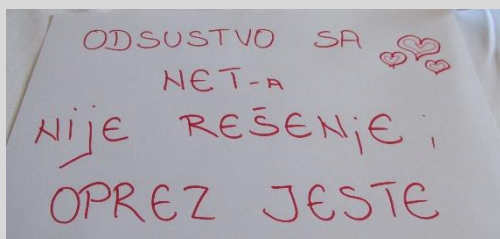 ODSUSTVO SA
NET-A
NIJE REŠENJE,
OPREZ JESTE